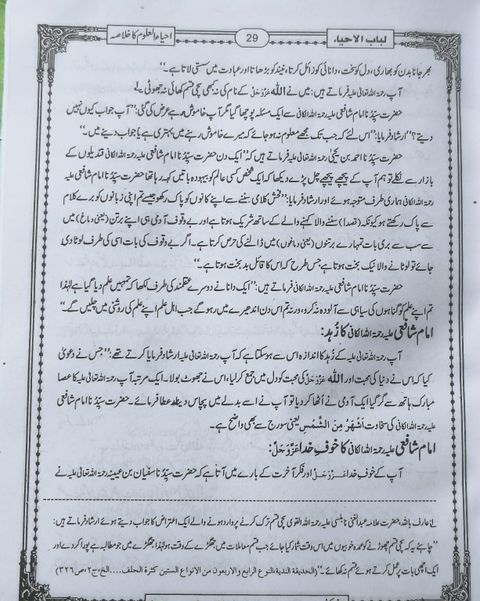 لباب الاحیاء
29
احیاء العلوم کا خلاصہ
بھر جانا بدن کو بھاری، دل کو سخت، دانائی کو زائل کرتا، نیند کو بڑھاتا اور عبادت میں سستی لاتا ہے۔"
آپ رحمۃ اللہ تعالیٰ علیہ فرماتے ہیں: میں نے اللہ عزوجل کے نام کی نہ کبھی سچی قسم کھائی نہ جھوٹی۔
حضرت سیِّدُنا امام شافعی علیہ رحمۃ اللہ الکافی سے ایک مسئلہ پوچھا گیا مگر آپ خاموش رہے، عرض کی گئی: "آپ جواب کیوں نہیں
دیتے؟" ارشاد فرمایا: "اس لئے کہ جب تک مجھے معلوم نہ ہو جائے کہ میرے خاموش رہنے میں بہتری ہے یا جواب دینے میں۔"
حضرت سیِّدُنا احمد بن یحییٰ رحمۃ اللہ تعالیٰ علیہ فرماتے ہیں کہ "ایک دن حضرت سیِّدُنا امام شافعی علیہ رحمۃ اللہ الکافی قندیلوں کے
بازار سے نکلے تو ہم آپ کے پیچھے پیچھے چل پڑے، دیکھا کہ ایک شخص کسی عالم کو بیہودہ باتیں کہہ رہا تھا حضرت سیِّدُنا امام شافعی علیہ
رحمۃ اللہ الکافی ہماری طرف متوجہ ہوئے اور ارشاد فرمایا: "فحش کلامی سننے سے اپنے کانوں کو پاک رکھو جیسے تم اپنی زبانوں کو برے کلام
سے پاک رکھتے ہو کیونکہ (قصداً) سننے والا کہنے والے کے ساتھ شریک ہوتا ہے اور بے وقوف آدمی ہی اپنے برتن (یعنی دماغ) میں
سے سب سے بری بات تمہارے برتنوں (یعنی دماغوں) میں ڈالنے کی حرص کرتا ہے۔ اگر بے وقوف کی بات اسی کی طرف لوٹا دی
جائے تو لوٹانے والا نیک بخت ہوتا ہے جس طرح کہ اس کا قائل بدبخت ہوتا ہے۔"
حضرت سیِّدُنا امام شافعی علیہ رحمۃ اللہ الکافی فرماتے ہیں: "ایک دانا نے دوسرے عقلمند کی طرف لکھا کہ تمہیں علم دیا گیا ہے لہٰذا
تم اپنے علم کو گناہوں کی سیاہی سے آلودہ نہ کرو ورنہ تم اس دن اندھیرے میں رہو گے جب اہلِ علم اپنے علم کی روشنی میں چلیں گے۔"
امام شافعی علیہ رحمۃ اللہ الکافی کا زُہد:
آپ رحمۃ اللہ تعالیٰ علیہ کے زہد کا اندازہ اس سے ہو سکتا ہے کہ آپ رحمۃ اللہ تعالیٰ علیہ ارشاد فرمایا کرتے تھے: "جس نے دعویٰ
کیا کہ اس نے دنیا کی محبت اور اللہ عزوجل کی محبت کو دل میں جمع کر لیا، اس نے جھوٹ بولا۔ ایک مرتبہ آپ رحمۃ اللہ تعالیٰ علیہ کا عصا
مبارک ہاتھ سے گر گیا ایک آدمی نے اٹھا کر دیا تو آپ نے اسے بدلے میں پچاس دینار عطا فرمائے۔ حضرت سیِّدُنا امام شافعی
علیہ رحمۃ اللہ الکافی کی سخاوت اَشْہَرُ مِنَ الشَّمْس یعنی سورج سے بھی واضح ہے۔
امام شافعی علیہ رحمۃ اللہ الکافی کا خوفِ خدا عَزَّوَجَلَّ:
آپ کے خوفِ خدا عزوجل اور فکرِ آخرت کے بارے میں آتا ہے کہ حضرت سیِّدُنا سفیان بن عیینہ رحمۃ اللہ تعالیٰ علیہ نے
عارف باللہ، حضرت علامہ عبدالغنی نابلسی علیہ رحمۃ اللہ القوی سچی قسم ترک کرنے پر وارد ہونے والے ایک اعتراض کا جواب دیتے ہوئے ارشاد فرماتے ہیں:
"چاہئے یہ کہ سچی قسم چھوڑنے کو عمدہ خوبیوں میں اس وقت شمار کیا جائے جب قسم معاملات میں جھگڑے کے وقت ہو لہٰذا جھگڑے میں جو مطالبہ ہے پورا کر دے اور
ایک اچھی بات پر عمل کرتے ہوئے قسم نہ کھائے۔" (الحدیقۃ الندیۃ النوع الرابع والاربعون من الانواع الستین کثرۃ الحلف....الخ، ج۲، ص۳۲۶)